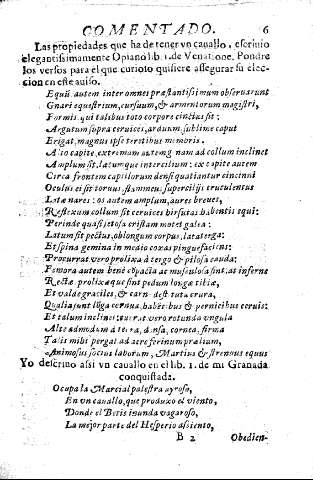 COMENTADO. 6
Las propiedades que ha de tener vn cauallo, escriuio
elegantissimamente Opiano lib. 1. de Venatione. Pondre
los versos para el que curioso quisiere assegurar su elec-
cion en este auiso.
Equũ autem inter omnes præstantissimum obseruarunt
Gnari equestrium, cursuum, & armentorum magistri,
Formis qui talibus toto corpore cinctus sit:
Argutum supra ceruices, arduum, sublime caput
Erigat, magnus ipse teretibus membris.
Alto capite, extremum autem genam ad collum inclinet
Amplum sit, latumque intercilium: ex capite autem
Circa frontem capillorum densi quatiantur cincinni
Oculus ei sit toruus, flammeus, supercilijs truculentus
Latæ nares: os autem amplum, aures breues,
Reflexum collum sit ceruices hirsutas habentis equi:
Perinde quasi setosa cristam motet galea:
Latum sit pectus, oblongum corpus, lata terga:
Et spina gemina in medio coxas pinguefaciens:
Procurrat vero prolixa à tergo & pilosa cauda:
Femora autem benè cõpacta ac musculosa sint: at inferne
Rectæ prolixæque sint pedum longæ tibiæ,
Et valde graciles, & carn[...] destituta crura,
Qualia sunt [...] ceruis habẽtibus & pernicibus ceruis:
Et talum inclinet: currat vero rotunda vngula
Alte admodum à terra, dẽnsa, cornea, firma
Talis mihi pergat ad aere ferinum prælium,
Animosus socius laborum, Martius & strenuus equus
Yo descriuo assi vn cauallo en el lib. 1. de mi Granada
conquistada.
Ocupa la Marcial palestra ayroso,
En vn cauallo, que produxo el viento,
Donde el Betis inunda vagaroso,
La mejor parte del Hesperio assiento,
B 2 Obedien-